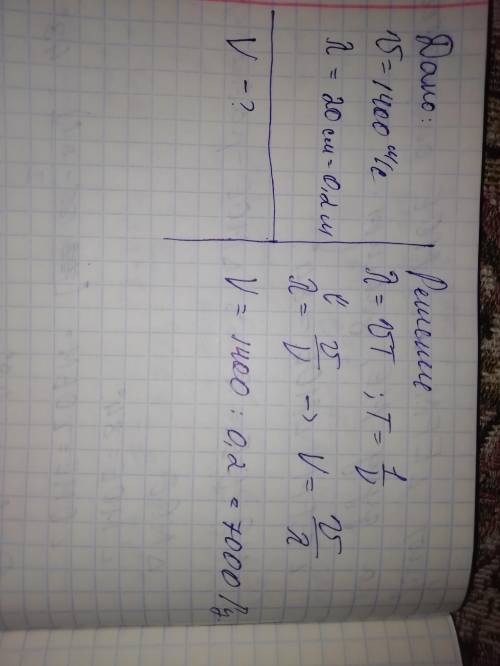 Дано:
υ = 1400 м/с
λ = 20 см = 0,2 м
ν - ?
Решение
λ = υT ; T = 1/ν
λ = υ/ν → ν = υ/λ
ν = 1400 : 0,2 = 7000 Гц